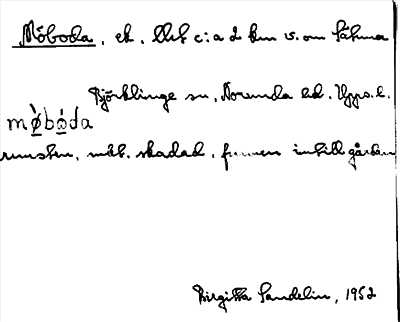 Möboda, ek. Utsk c:a 2 km v. om Sätuna
Björklinge sn, Norunda hd. Upps.l.
mø̀bo̊́da
runsten, mkt. skadad, funnen intill gården
Birgitta Sandelin, 1952